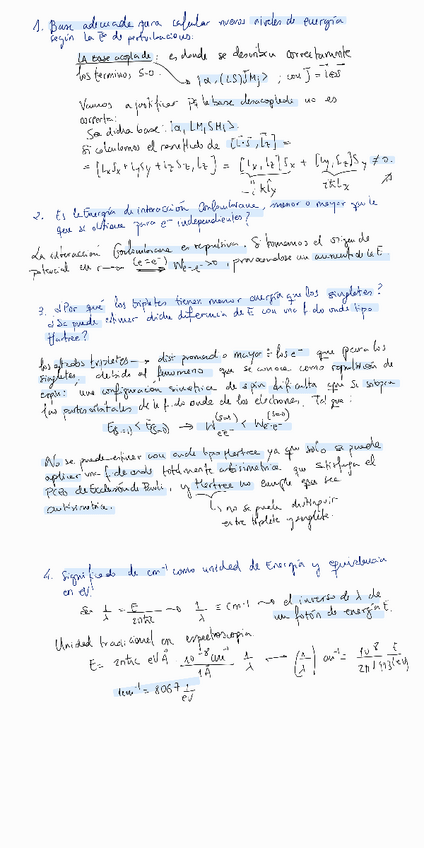 1. Base adecuada para calcular nuevos niveles de energía
según la Tª de perturbaciones:
La base acoplada: es donde se describen correctamente
los terminos S-O. → |α,(LS)JMJ> ; con J = L⊗S
Vamos a justificar pq la base desacoplada no es
correcta:
Sea dicha base: |α,LMLSMS>
Si calculamos el resultado de [L·S, Lz] =
= [LxSx + LySy + LzSz, Lz] = [Lx,Lz]Sx + [Ly,Lz]Sy ≠ 0.
-iħLy iħLx
2. Es la Energía de interacción Coulombiana, menor o mayor que la
que se obtiene para e⁻ independientes?
La interacción Coulombiana es repulsiva. Si tomamos el origen de
potencial en (e⁻e⁻) We-e>0, provocandose un aumento de la E
3. ¿Por qué los tripletes tienen menor energía que los singletes?
¿Se puede estimar dicha diferencia de E con una f. de onda tipo
Hartree?
los estados tripletes → dist promedio mayor los e⁻ que para los
singletes, debido al fenomeno que se conoce como repulsión de
espín: una configuración simétrica de spin dificulta que se solapen
las partes de la f. de onda de los electrones. Tal que:
E(S=1) < E(S=0) → We-e(S=1) < We-e(S=0)
No se pueden estimar con onda tipo Hartree ya que solo se puede
aplicar una f. de onda totalmente antisimétrica que satisfaga el
PCPO de Exclusión de Pauli, y Hartree no cumple que sea
antisimétrica.
↳ no se puede distinguir
entre triplete y singlete.
4. Significado de cm⁻¹ como unidad de Energía y equivalencia
en eV!
1/λ = E/2πħc → 1/λ ≡ cm⁻¹ → el inverso de λ de
un fotón de energía E.
Unidad tradicional en espectroscopia.
E = 2πħc eV Å 10⁻⁸cm⁻¹/1Å 1/λ → (1/λ) cm⁻¹ = 10⁸/2π
1cm⁻¹ = 8067 1/eV